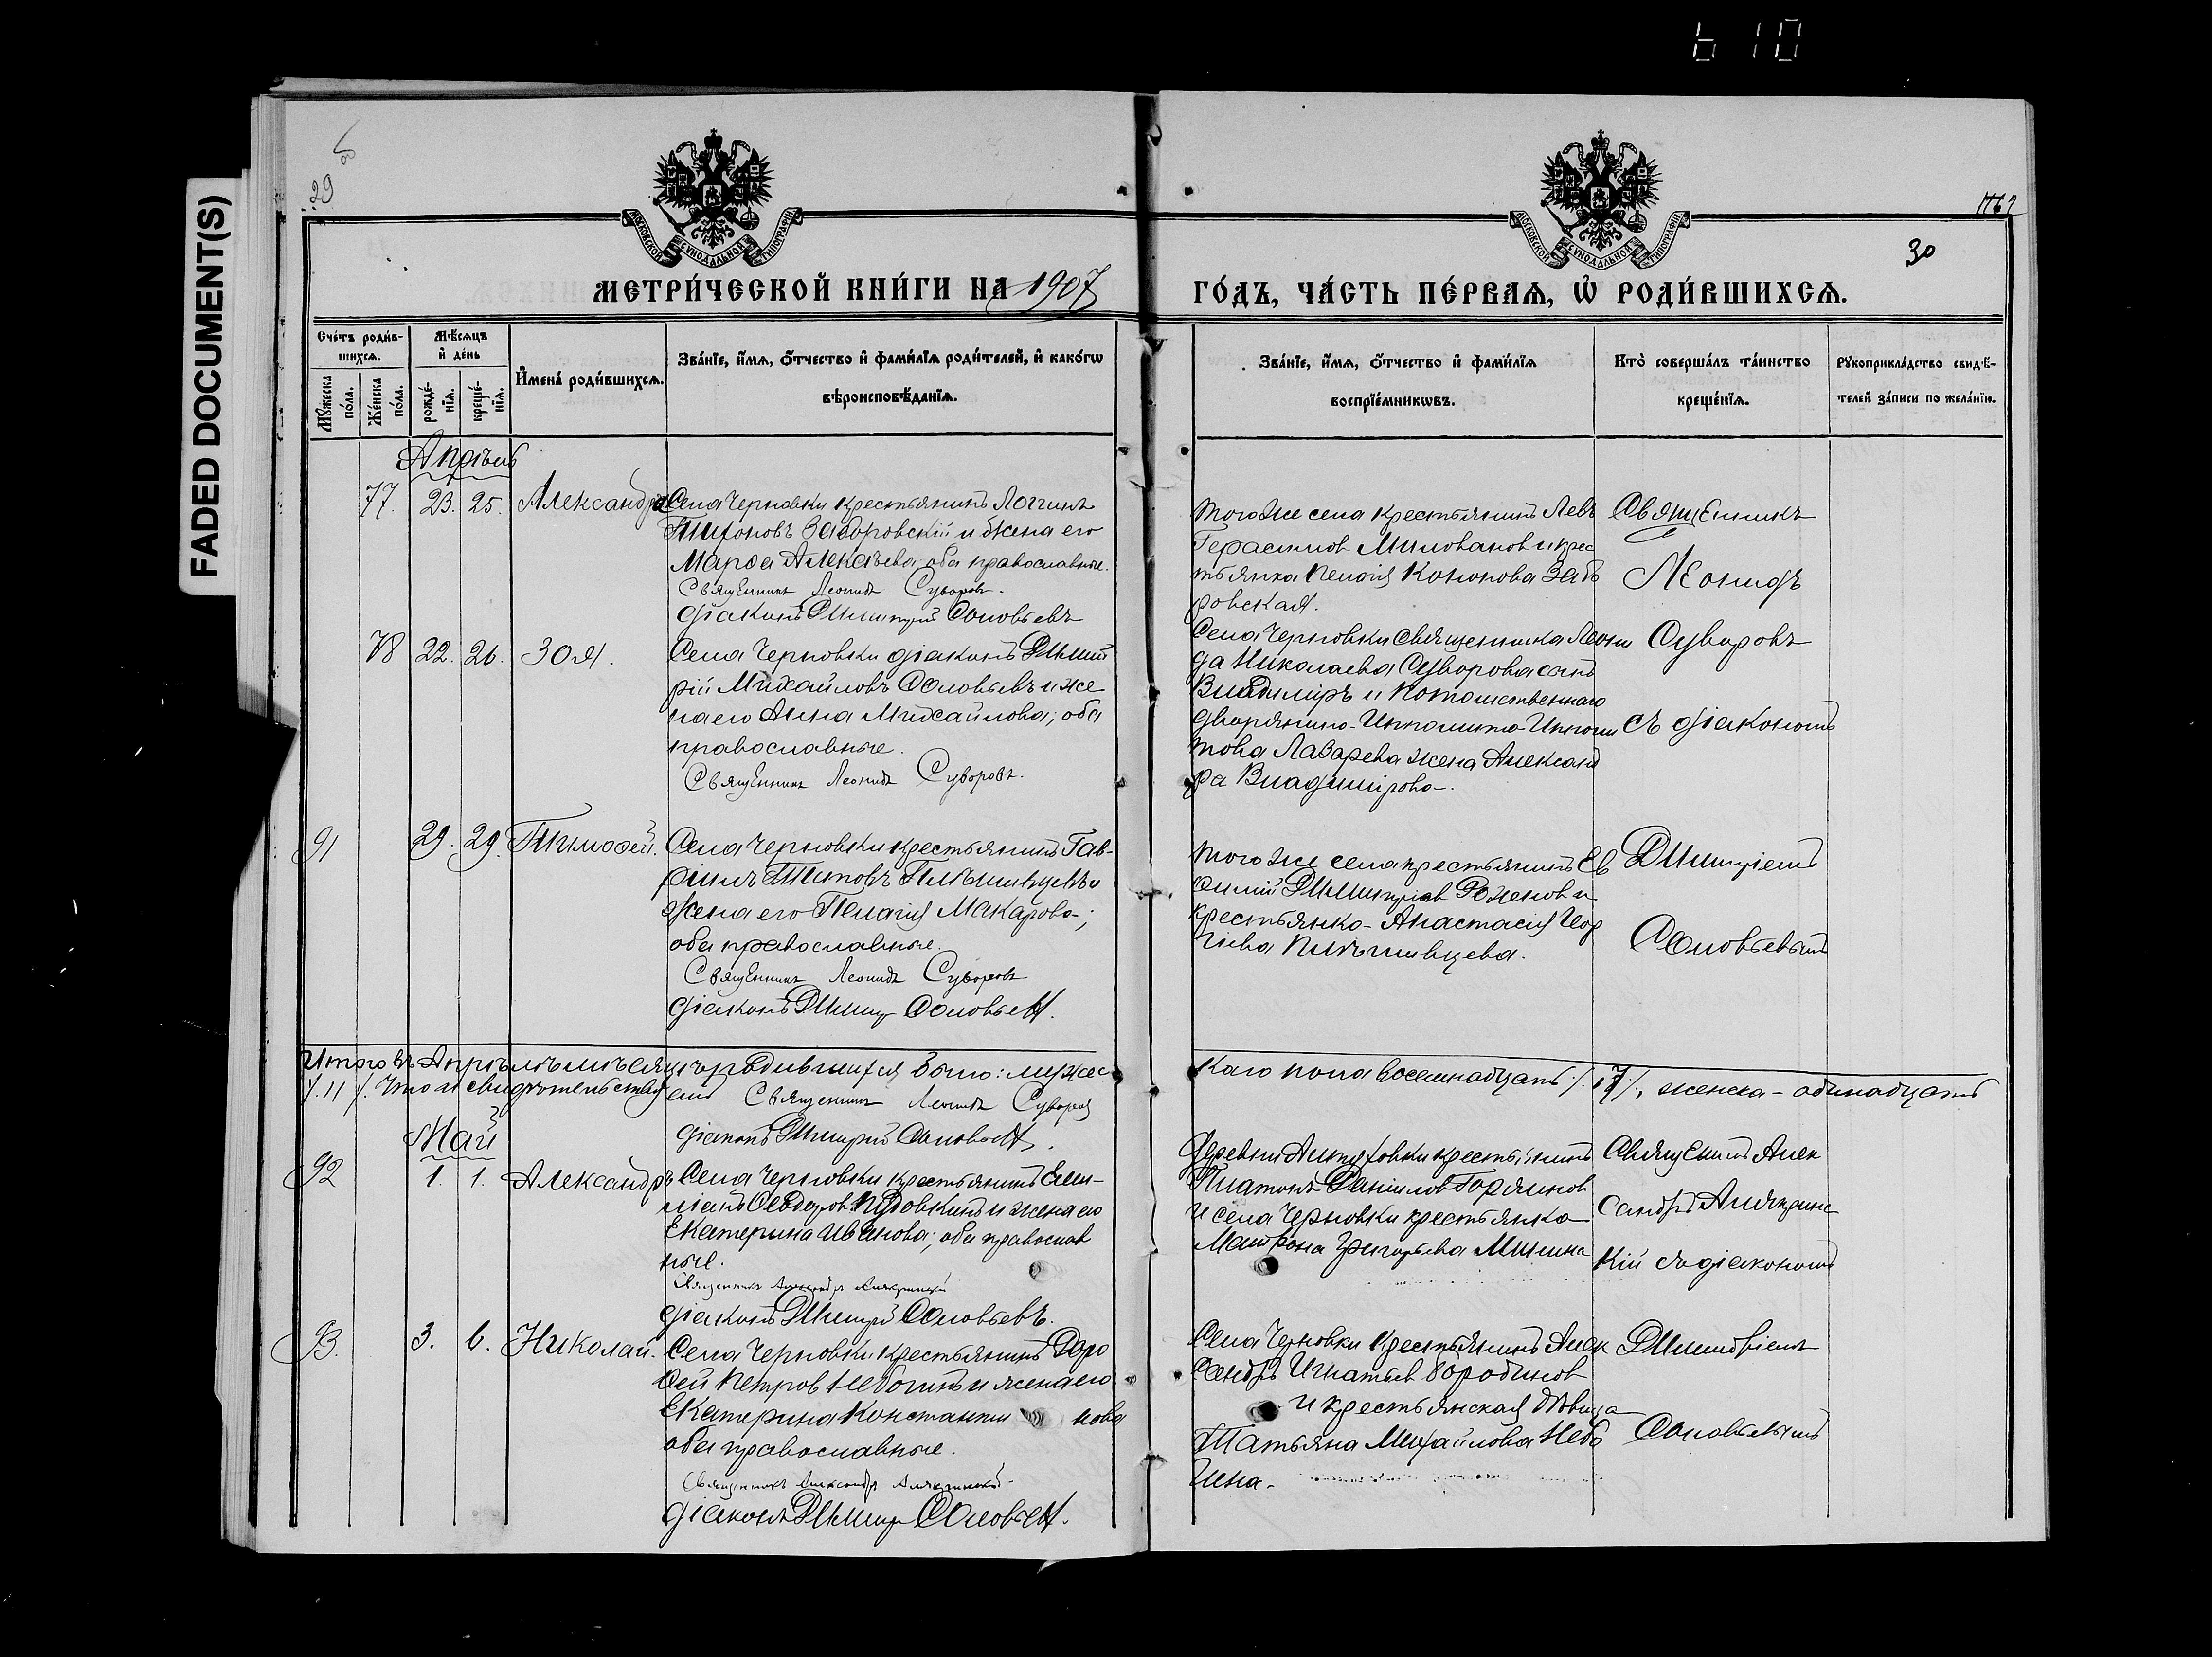 610
FADED DOCUMENT(S)
29
1162
30
МОСКОВСКОЙ СѴНОДАЛЬНОЙ ТИПОГРАФІИ
МОСКОВСКОЙ СѴНОДАЛЬНОЙ ТИПОГРАФІИ
МЕТРИ́ЧЕСКОЙ КНИ́ГИ НА 1907
ГО́ДЪ, ЧА́СТЬ ПЕ́РВАѦ, Ѡ҆ РОДИ́ВШИХСѦ.
Сче́тъ роди́в-
шихсѧ.
Мꙋ́жеска по́ла.
Же́нска по́ла.
Мѣ́сѧцъ
и҆ де́нь
рожде́-нїѧ.
креще́-нїѧ.
И҆мена̀ роди́вшихсѧ.
Зва́нїе, и҆́мѧ, ѻ҆́тчество и҆ фами́лїѧ роди́телей, и҆ како́гѡ
вѣроисповѣ́данїѧ.
Зва́нїе, и҆́мѧ, ѻ҆́тчество и҆ фами́лїѧ
воспрїе́мникѡвъ.
Кто̀ соверша́лъ та́инство
креще́нїѧ.
Рꙋкоприкла́дство свидѣ́-
телей за́писи по жела́нїю.
Апрѣль
77. 23. 25. Александра
Села Черновки крестьянинъ Логгинъ
Тихоновъ Заборовскій и жена его
Марѳа Алексѣева, оба православные.
Священникъ Леонидъ Суворовъ.
Діаконъ Димитрій Соловьевъ
Того же села крестьянинъ Левъ
Герасимов Миловановъ и крес
тьянка Пелагія Кононова Забо
ровская.
Священникъ
Леонидъ
Суворовъ
съ діакономъ
78 22. 26. Зоя.
Села Черновки діаконъ Димит
рій Михайловъ Соловьевъ и же
на его Анна Михайлова; оба
православные.
Священникъ Леонидъ Суворовъ.
Села Черновки священника Леони
да Николаева Суворова сынъ
Владиміръ и потомственнаго
дворянина Ипполита Ипполи
това Лазарева жена Александ
ра Владимірова.
91 29. 29. Тимоѳей.
Села Черновки крестьянинъ Гав-
риилъ Титовъ Плѣшивцевъ и
жена его Пелагія Макарова;
оба православные.
Священникъ Леонидъ Суворовъ
Діаконъ Димитр Соловьевъ.
Того же села крестьянинъ Ев
ѳимій Димитріев Роженов и
крестьянка Анастасія Геор
гіева Плѣшивцева.
Димитріемъ
Соловьевымъ
Итого въ Апрѣлѣ мѣсяцѣ родившихся было: мужес
каго пола восемнадцать /. 17 /., женска - одинадцать
/. 11 /. Что и свидѣтельствуемъ Священникъ Леонидъ Суворовъ
Діаконъ Димитрій Соловьевъ.
Май
92 1. 1. Александръ
Села Черновки крестьянинъ Еми-
ліанъ Ѳеодоров Пудовкинъ и жена его
Екатерина Иванова; оба православ
ные.
Священникъ Александръ
Діаконъ Димитрій Соловьевъ.
Деревни крестьянинъ
Платонъ Даніилов Горяинов
и села Черновки крестьянка
Матрона Григорьева Мишина
Священник Алек
сандръ Алякринс
кій съ діакономъ
93. 3. 6. Николай.
Села Черновки крестьянинъ Доро
ѳей Петров Небогинъ и жена его
Екатерина Константи нова
оба православные.
Священникъ Александръ Алякринскій
Діаконъ Димитр Соловьевъ.
Села Черновки крестьянинъ Алек
сандръ Игнатьев Бородинов
и крестьянская дѣвица
Татьяна Михайлова Небо
гина.
Димитріемъ
Соловьевымъ